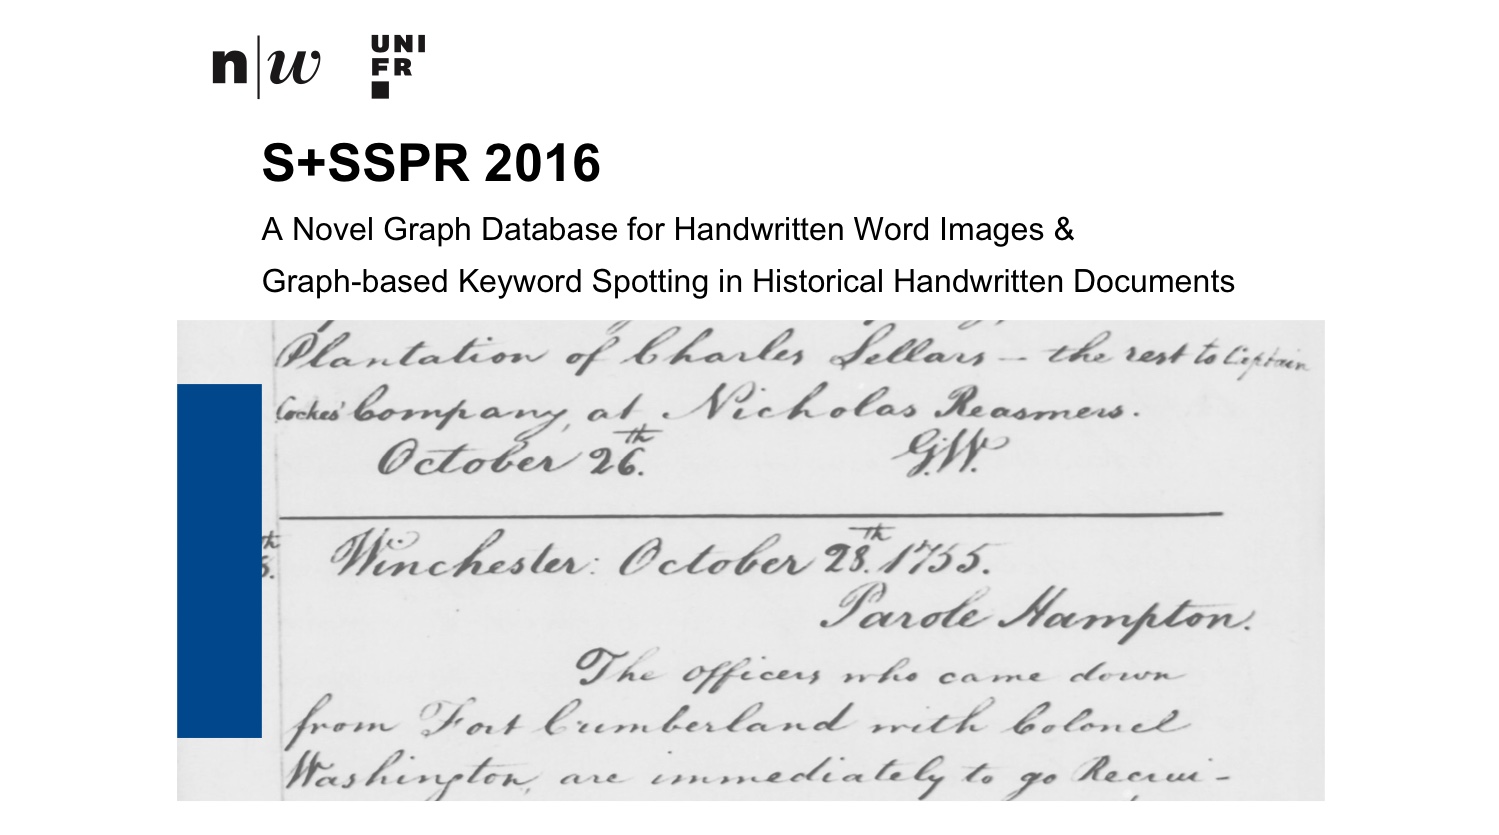 n|w UNI
FR
S+SSPR 2016
A Novel Graph Database for Handwritten Word Images &
Graph-based Keyword Spotting in Historical Handwritten Documents
Plantation of Charles Sellars – the rest to Captain
Cockes' Company, at Nicholas Reasmers.
October 26.th G.W.
th
Winchester: October 28.th 1755.
Parole Hampton.
The officers who came down
from Fort Cumberland with Colonel
Washington, are immediately to go Recrui-